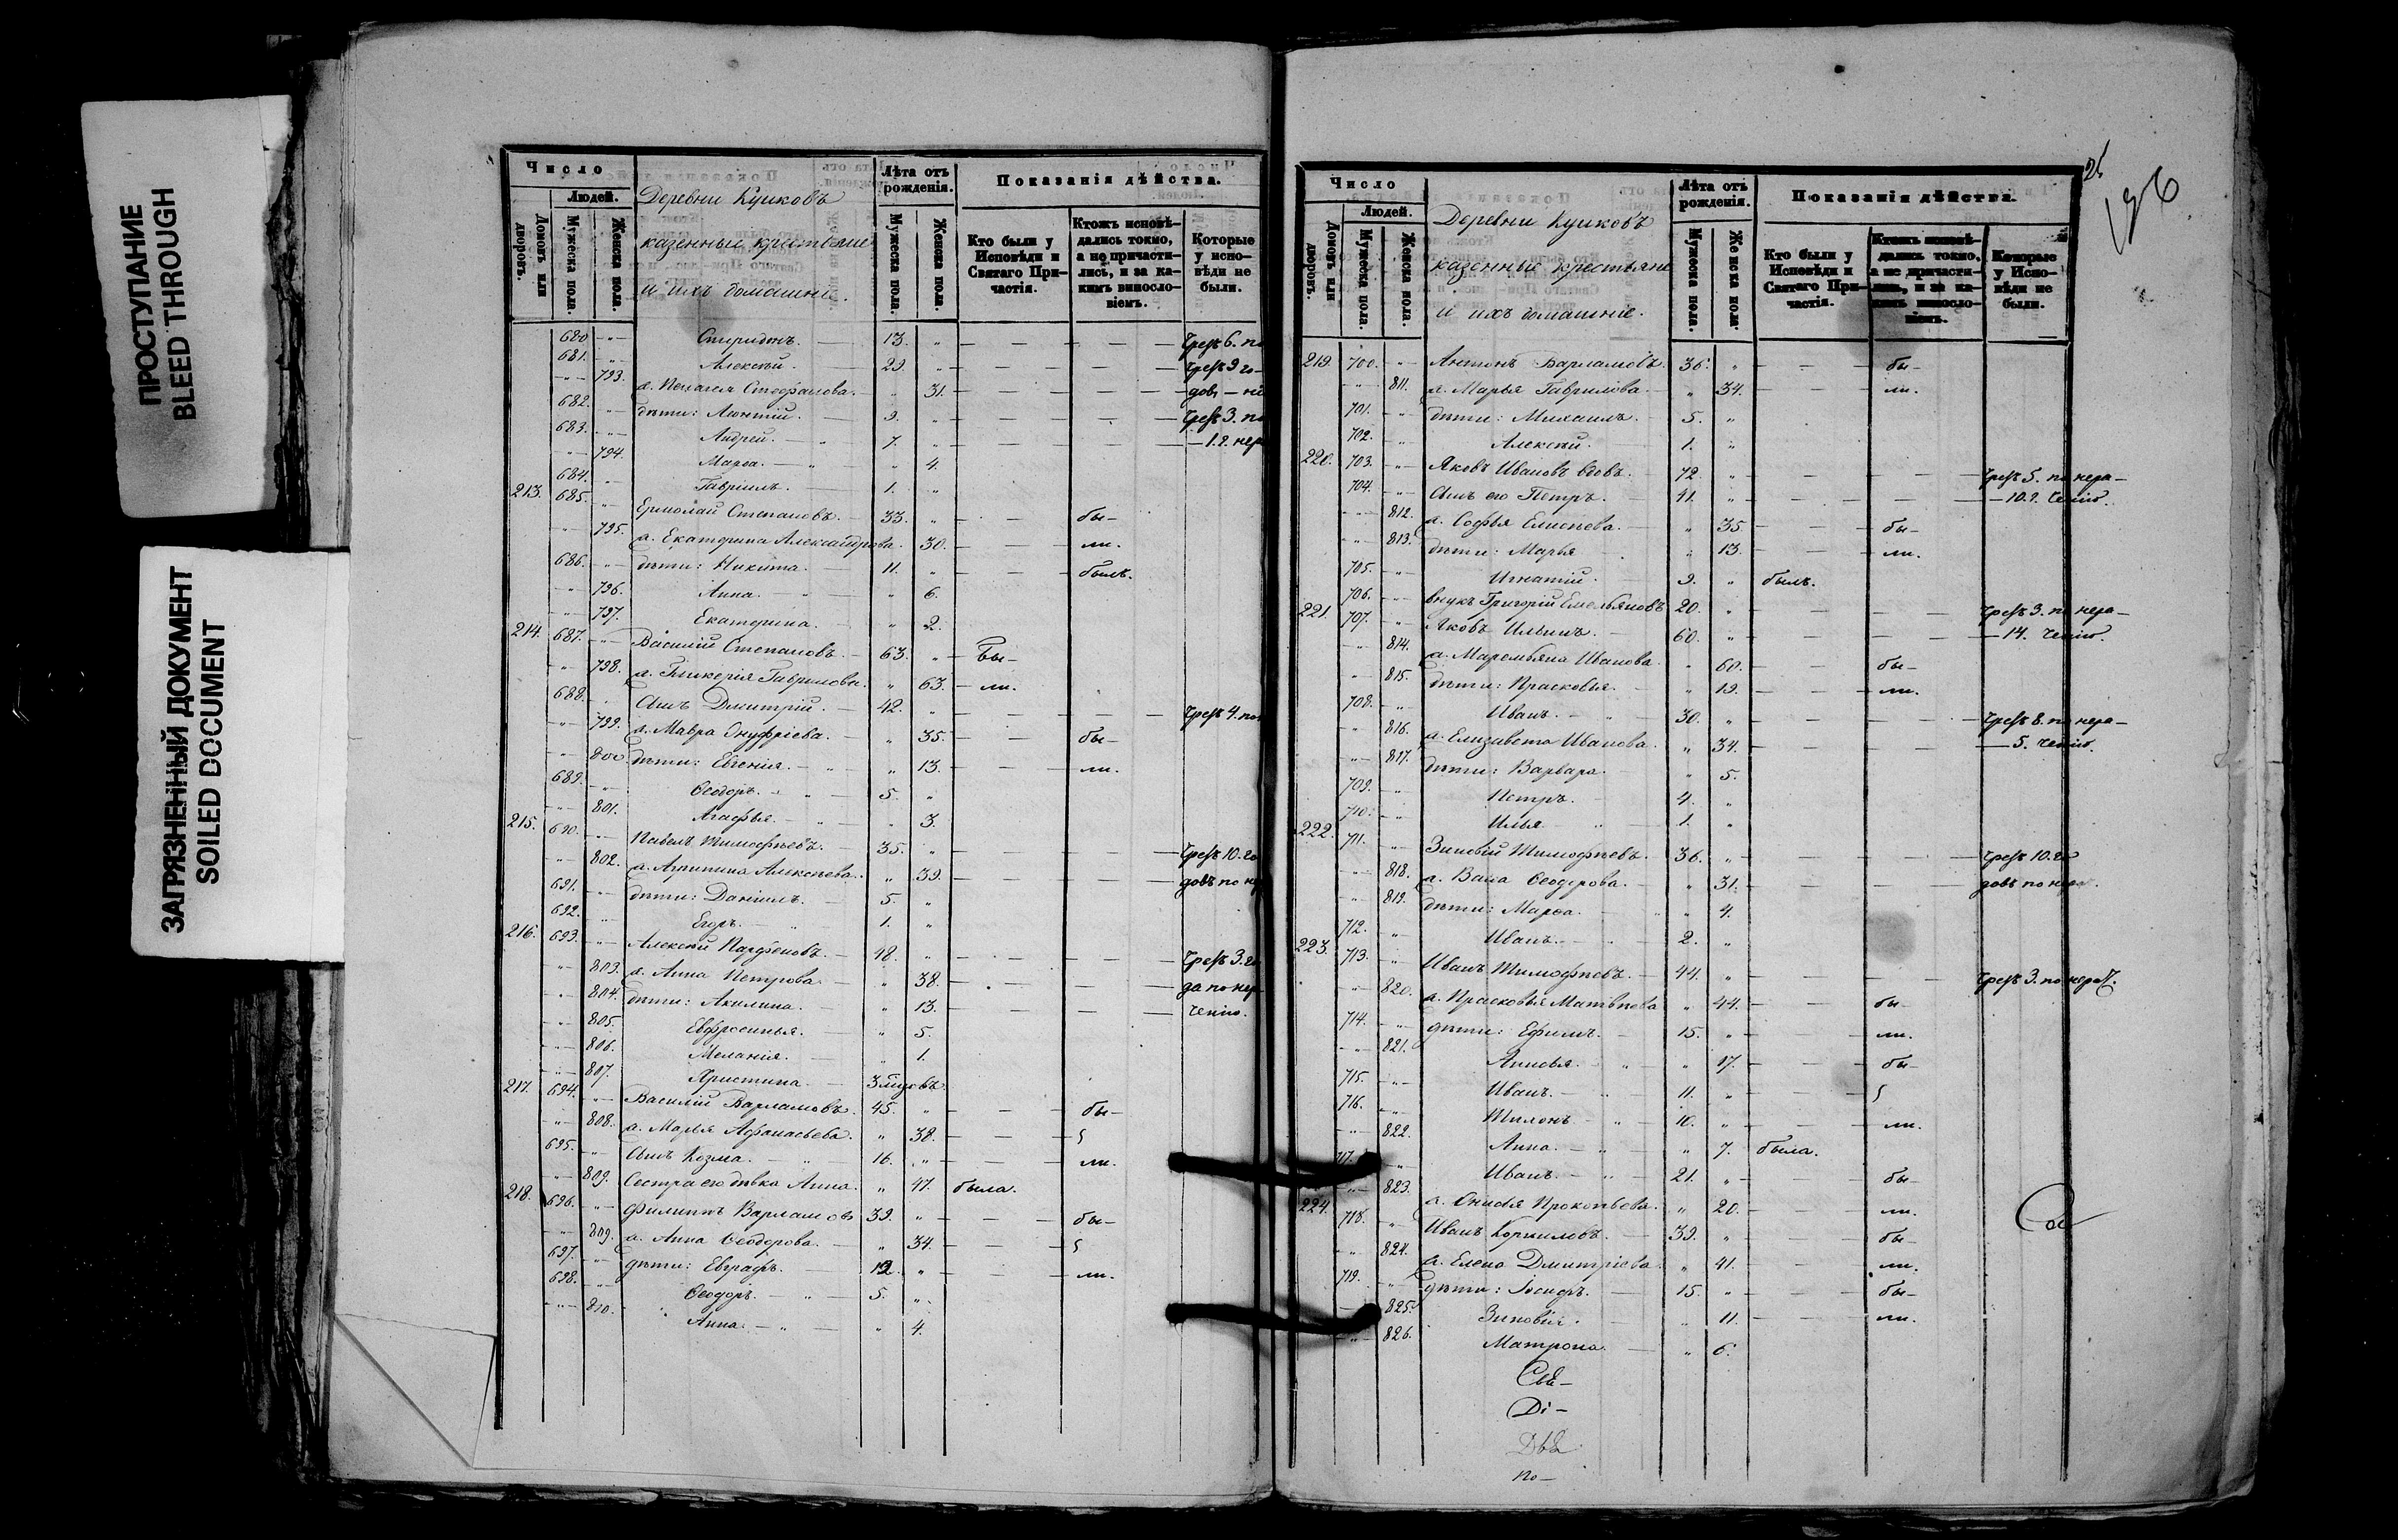 ПРОСТУПАНИЕ
BLEED THROUGH
ЗАГРЯЗНЕННЫЙ ДОКУМЕНТ
SOILED DOCUMENT
Число
Людей.
Домовъ или дворовъ.
Мужеска пола.
Женска пола.
Деревни
казенные крестьяне
и ихъ домашніе.
Лѣта отъ рожденія.
Мужеска пола.
Женска пола.
Показанія дѣйства.
Кто были у Исповѣди и Святаго Причастія.
Ктожъ исповѣдались токмо, а не причастились, и за какимъ винословіемъ.
Которые у исповѣди не были.
680 Спиридонъ. 13. чрезъ 6. по
681. Алексѣй. 29. чрезъ 9 го-
793. а. Пелагея Стефанова. 31. довъ
682. дѣти: Леонтій. 9. чрезъ 3. по
683. Андрей. 7. 1.2. нер
794. Марѳа. 4.
684. Гавріилъ. 1.
213. 685. Ермолай Степановъ. 33. бы-
795. а. Екатерина Александрова. 30. ли.
686. дѣти: Никита. 11. былъ.
796. Анна. 6.
797. Екатерина. 2.
214. 687. Василій Степановъ. 63. Бы-
798. а. Гликерія Гаврилова. 63. ли.
688. Сынъ Дмитрій. 42. чрезъ 4. по
799. а. Мавра Онуфріева. 35. бы-
800. дѣти: Евгенія. 13. ли.
689. Ѳеодоръ. 5.
801. Агафья. 3.
215. 690. Павелъ Тимофѣевъ. 35. чрезъ 10. го
802. а. Агрипина Алексѣева. 39. довъ по не
691. дѣти: Даніилъ. 5.
692. Егоръ. 1.
216. 693. Алексѣй Парфеновъ. 48. чрезъ 3. го
803. а. Анна Петрова. 38. да по нер
804. дѣти: Акилина. 13. ченію.
805. Евфросинья. 5.
806. Меланія. 1.
807. Христина. 3 мѣ
217. 694. Василій Варламовъ. 45. бы-
808. а. Марья Афанасьева. 38.
695. Сынъ Козма. 16. ли.
809. Сестра его дѣвка Анна. 47. была.
218. 696. Филиппъ Варламовъ 39. бы-
809. а. Анна Ѳеодорова. 34.
697. дѣти: Евграфъ. 12. ли.
698. Ѳеодоръ. 5.
810. Анна. 4.
Число
Людей.
Домовъ или дворовъ.
Мужеска пола.
Женска пола.
Деревни
казенные крестьяне
и ихъ домашніе.
Лѣта отъ рожденія.
Мужеска пола.
Женска пола.
Показанія дѣйства.
Кто были у Исповѣди и Святаго Причастія.
Ктожъ исповѣдались токмо, а не причастились, и за какимъ винословіемъ.
Которые у Исповѣди не были.
219. 700. Антонъ Варламовъ. 36. бы-
811. а. Марья Гаврилова. 34. ли.
701. дѣти: Михаилъ. 5.
702. Алексѣй. 1.
220. 703. Яковъ Ивановъ вдовъ. 72. чрезъ 5. по нера-
704. Сынъ его Петръ. 41. 10. г. ченію.
812. а. Софья Елисѣева. 35. бы-
813. дѣти: Марья 13. ли.
705. Игнатій. 9. былъ.
706. внукъ Григорій Емельяновъ 20. чрезъ 3. по нера-
221. 707. Яковъ Ильинъ. 60. 14. ченію.
814. а. Маремьяна Иванова. 60. бы-
815. дѣти: Прасковья. 19. ли.
708. Иванъ. 30. чрезъ 8. по нера-
816. а. Елизавета Иванова. 34. 5. ченію.
817. дѣти: Варвара. 5.
709. Петръ. 4.
710. Илья. 1.
222. 711. Зиновій Тимофѣевъ. 36. чрезъ 10. го
818. а. Васа Ѳеодорова. 31. довъ по нера.
819. дѣти: Марѳа. 4.
712. Иванъ. 2.
223. 713. Иванъ Тимофѣевъ. 44. чрезъ 3. по нера
820. а. Прасковья Матвѣева 44. бы-
714. дѣти: Ефимъ. 15. ли.
821. 17. бы-
715. Иванъ. 11.
716. 10. ли.
822. Анна. 7. была.
717. Иванъ. 21. бы-
823. а. Онисья Прокопьева. 20. ли.
224. 718. Иванъ Корниловъ. 39. бы-
824. а. Елена Дмитріева. 41. ли.
719. дѣти: Іосифъ. 15. бы-
825. Зиновія. 11. ли.
826. Матрона. 6.
Свя-
Ді-
по-